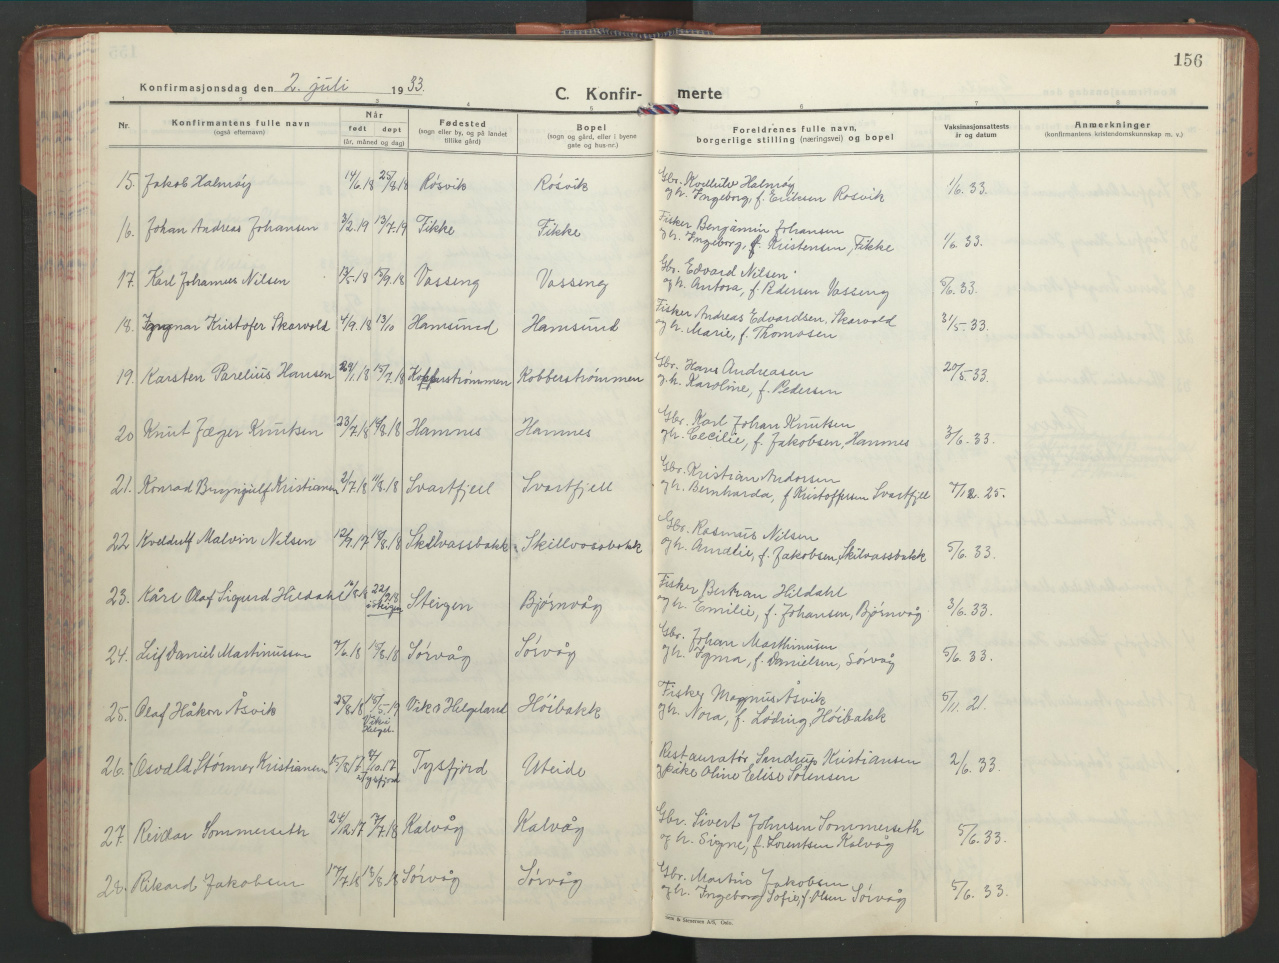 156
Konfirmasjonsdag den 2. juli 1933.
C. Konfir- merte
1 2 3 4 5 6 7 8
Nr.
Konfirmantens fulle navn
(også efternavn)
Når
født døpt
(år, måned og dag)
Fødested
(sogn eller by, og på landet
tillike gård)
Bopel
(sogn og gård, eller i byene
gate og hus-nr.)
Foreldrenes fulle navn,
borgerlige stilling (næringsvei) og bopel
Vaksinasjonsattests
år og datum
Anmerkninger
(konfirmantens kristendomskunnskap m. v.)
15. Jakob Halmøy 14/6.18 25/8.18 Røsvik Røsvik Gbr. Halmøy 1/6.33.
og h. Ingeborg, f. Eriksen Røsvik
16. Johan Andreas Johansen 3/2.19 13/7.19 Fikke Fikke Fisker Benjamin Johansen 1/6.33.
og h. Ingeborg, f. Kristensen, Fikke
17. Karl Johannes Nilsen 15/9.18 Vasseng Vasseng Gbr. Edvard Nilsen 5/6.33.
og h. Antora, f. Pedersen Vasseng
18. Ingmar Kristofer Skarvold 4/9.18 13/10 Hamsund Hamsund Fisker Andreas Edvardsen, Skarvold 31/5-33.
og h. Marie, f. Thomasen
19. Karsten Parelius Hansen 15/7.18 Kopperstrømmen Kobberstrømmen Gbr. Hans Andreasen 20/5.33.
og h. Karoline, f. Pedersen
20 Knut Jæger Knutsen 23/7.18 18/8.18 Hamnes Hamnes Gbr. Karl Johan Knutsen 3/6.33.
og h. Cecilie, f. Jakobsen, Hamnes
21. Konrad Brynjulf Kristiansen 2/7.18 11/8.18 Svartfjell Svartfjell Gbr. Kristian Andersen 7/12.25.
og h. Bernharda, f. Kristoffersen Svartfjell
22 Kveldulf Malvin Nilsen 12/9.17 18/8.18 Skilvassbakk Skillvassbakk Gbr. Rasmus Nilsen 5/6.33.
og h. Amalie, f. Jakobsen, Skilvassbakk
23. Kåre Olaf Sigurd Hildahl 22/9.18 i Steigen Steigen Bjørnvåg Fisker Bertran Hildahl 3/6.33.
og h. Emilie, f. Johansen, Bjørnvåg
24. Leif Daniel Martinussen 7/6.18 18/8.18 Sørvåg Sørvåg Gbr. Johan Marthinusen 5/6.33.
og h. Irma, f. Danielsen, Sørvåg
25. Olaf Håkon Åsvik 25/8.18 15/5.19 Vik i Helgel. Vik i Helgeland Höibakk Fisker Magnus Åsvik 5/11.21.
og h. Nora, f. Løding, Höibakk
26. Osvald Størmer Kristiansen 15/8.17 i Tysfjord Tysfjord Uteide Restauratør Sandrup Kristiansen 2/6.33.
og pike Oline Elise Sørensen
27. Reidar Sommerseth 24/12.17 7/7.18 Kalvåg Kalvåg Gbr. Sivert Johnsen Sommerseth 5/6.33.
og h. Signe, f. Lorentsen Kalvåg
28. Rikard Jakobsen 17/7.18 18/8.18 Sørvåg Sørvåg Gbr. Martin Jakobsen 5/6.33.
og h. Ingeborg Sofie, f. Olsen Sørvåg
& Stenersen A/S, Oslo.